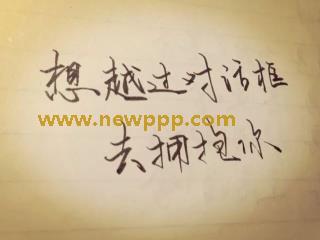 想越过对话框
www.newppp.com
去拥抱你